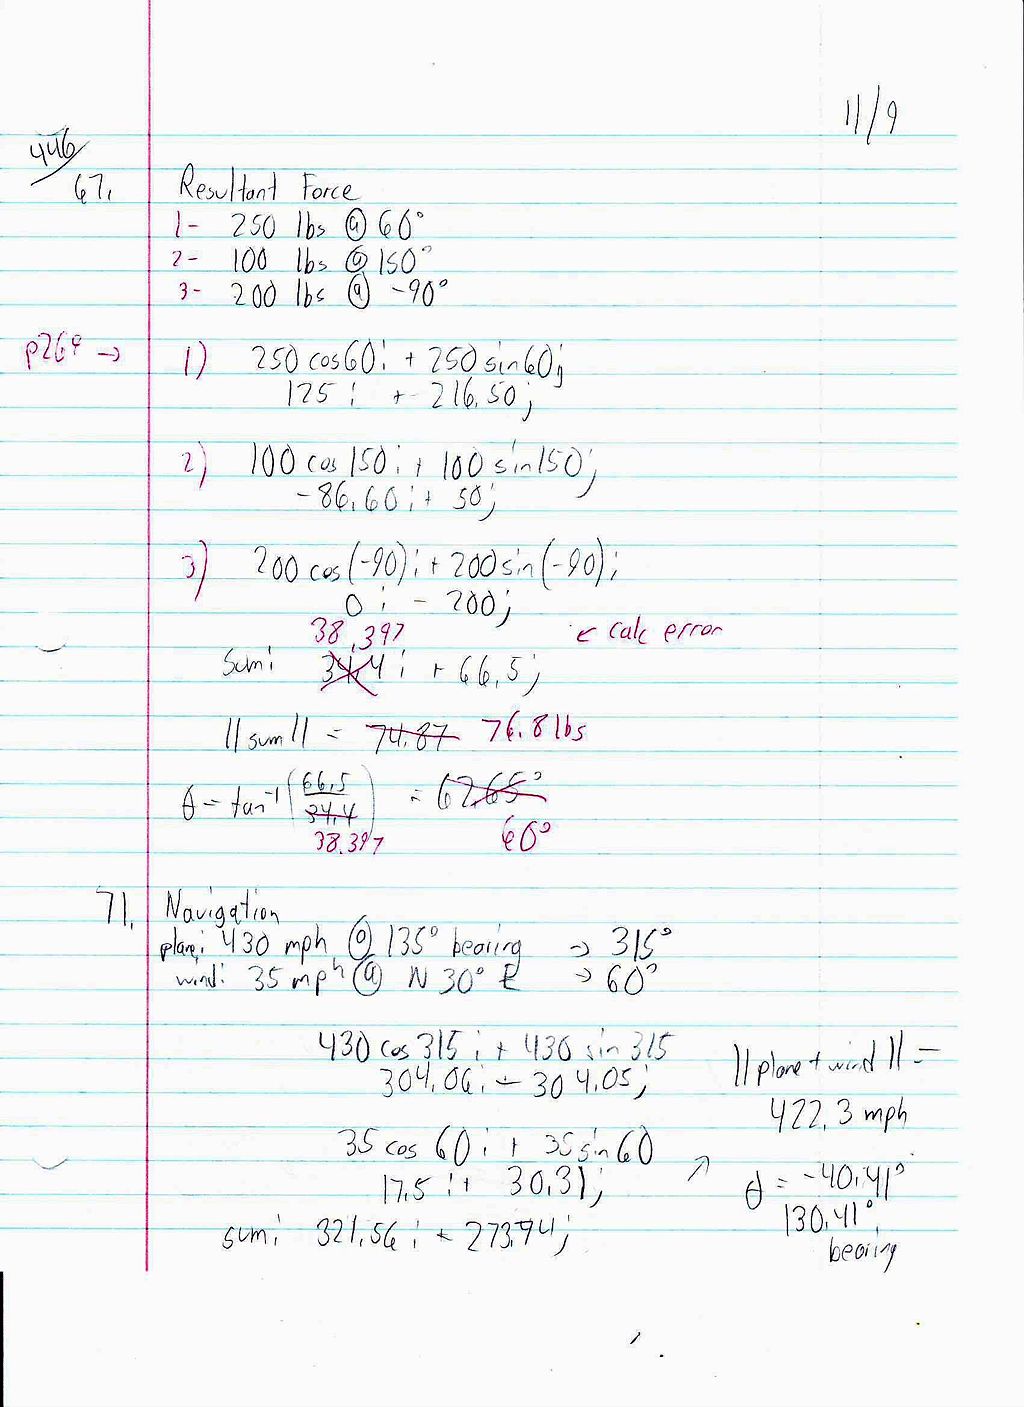 11/9
446
67. Resultant Force
1- 250 lbs @ 60°
2- 100 lbs @ 150°
3- 200 lbs @ -90°
p264 → 1) 250 cos60i + 250 sin60j
125 i + 216.50j
2) 100 cos 150i + 100 sin150j
-86.60i + 50j
3) 200 cos(-90)i + 200 sin(-90)j
0i - 200j
38.397 ← calc error
sum: 34.4i + 66.5j
||sum|| = 74.87 76.8 lbs
θ = tan⁻¹(66.5/34.4) = 62.65°
38.397 60°
71. Navigation
plane: 430 mph @ 135° bearing → 315°
wind: 35 mph @ N 30° E → 60°
430 cos 315 i + 430 sin 315
304.06i - 304.05j
||plane + wind|| =
422.3 mph
35 cos 60i + 35 sin 60
17.5 i + 30.31j
↗ θ = -40.41°
130.41°
bearing
sum: 321.56i - 273.74j